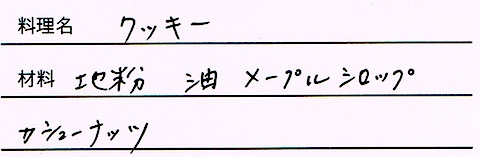 料理名 クッキー
材料 地粉 油 メープルシロップ
カシューナッツ